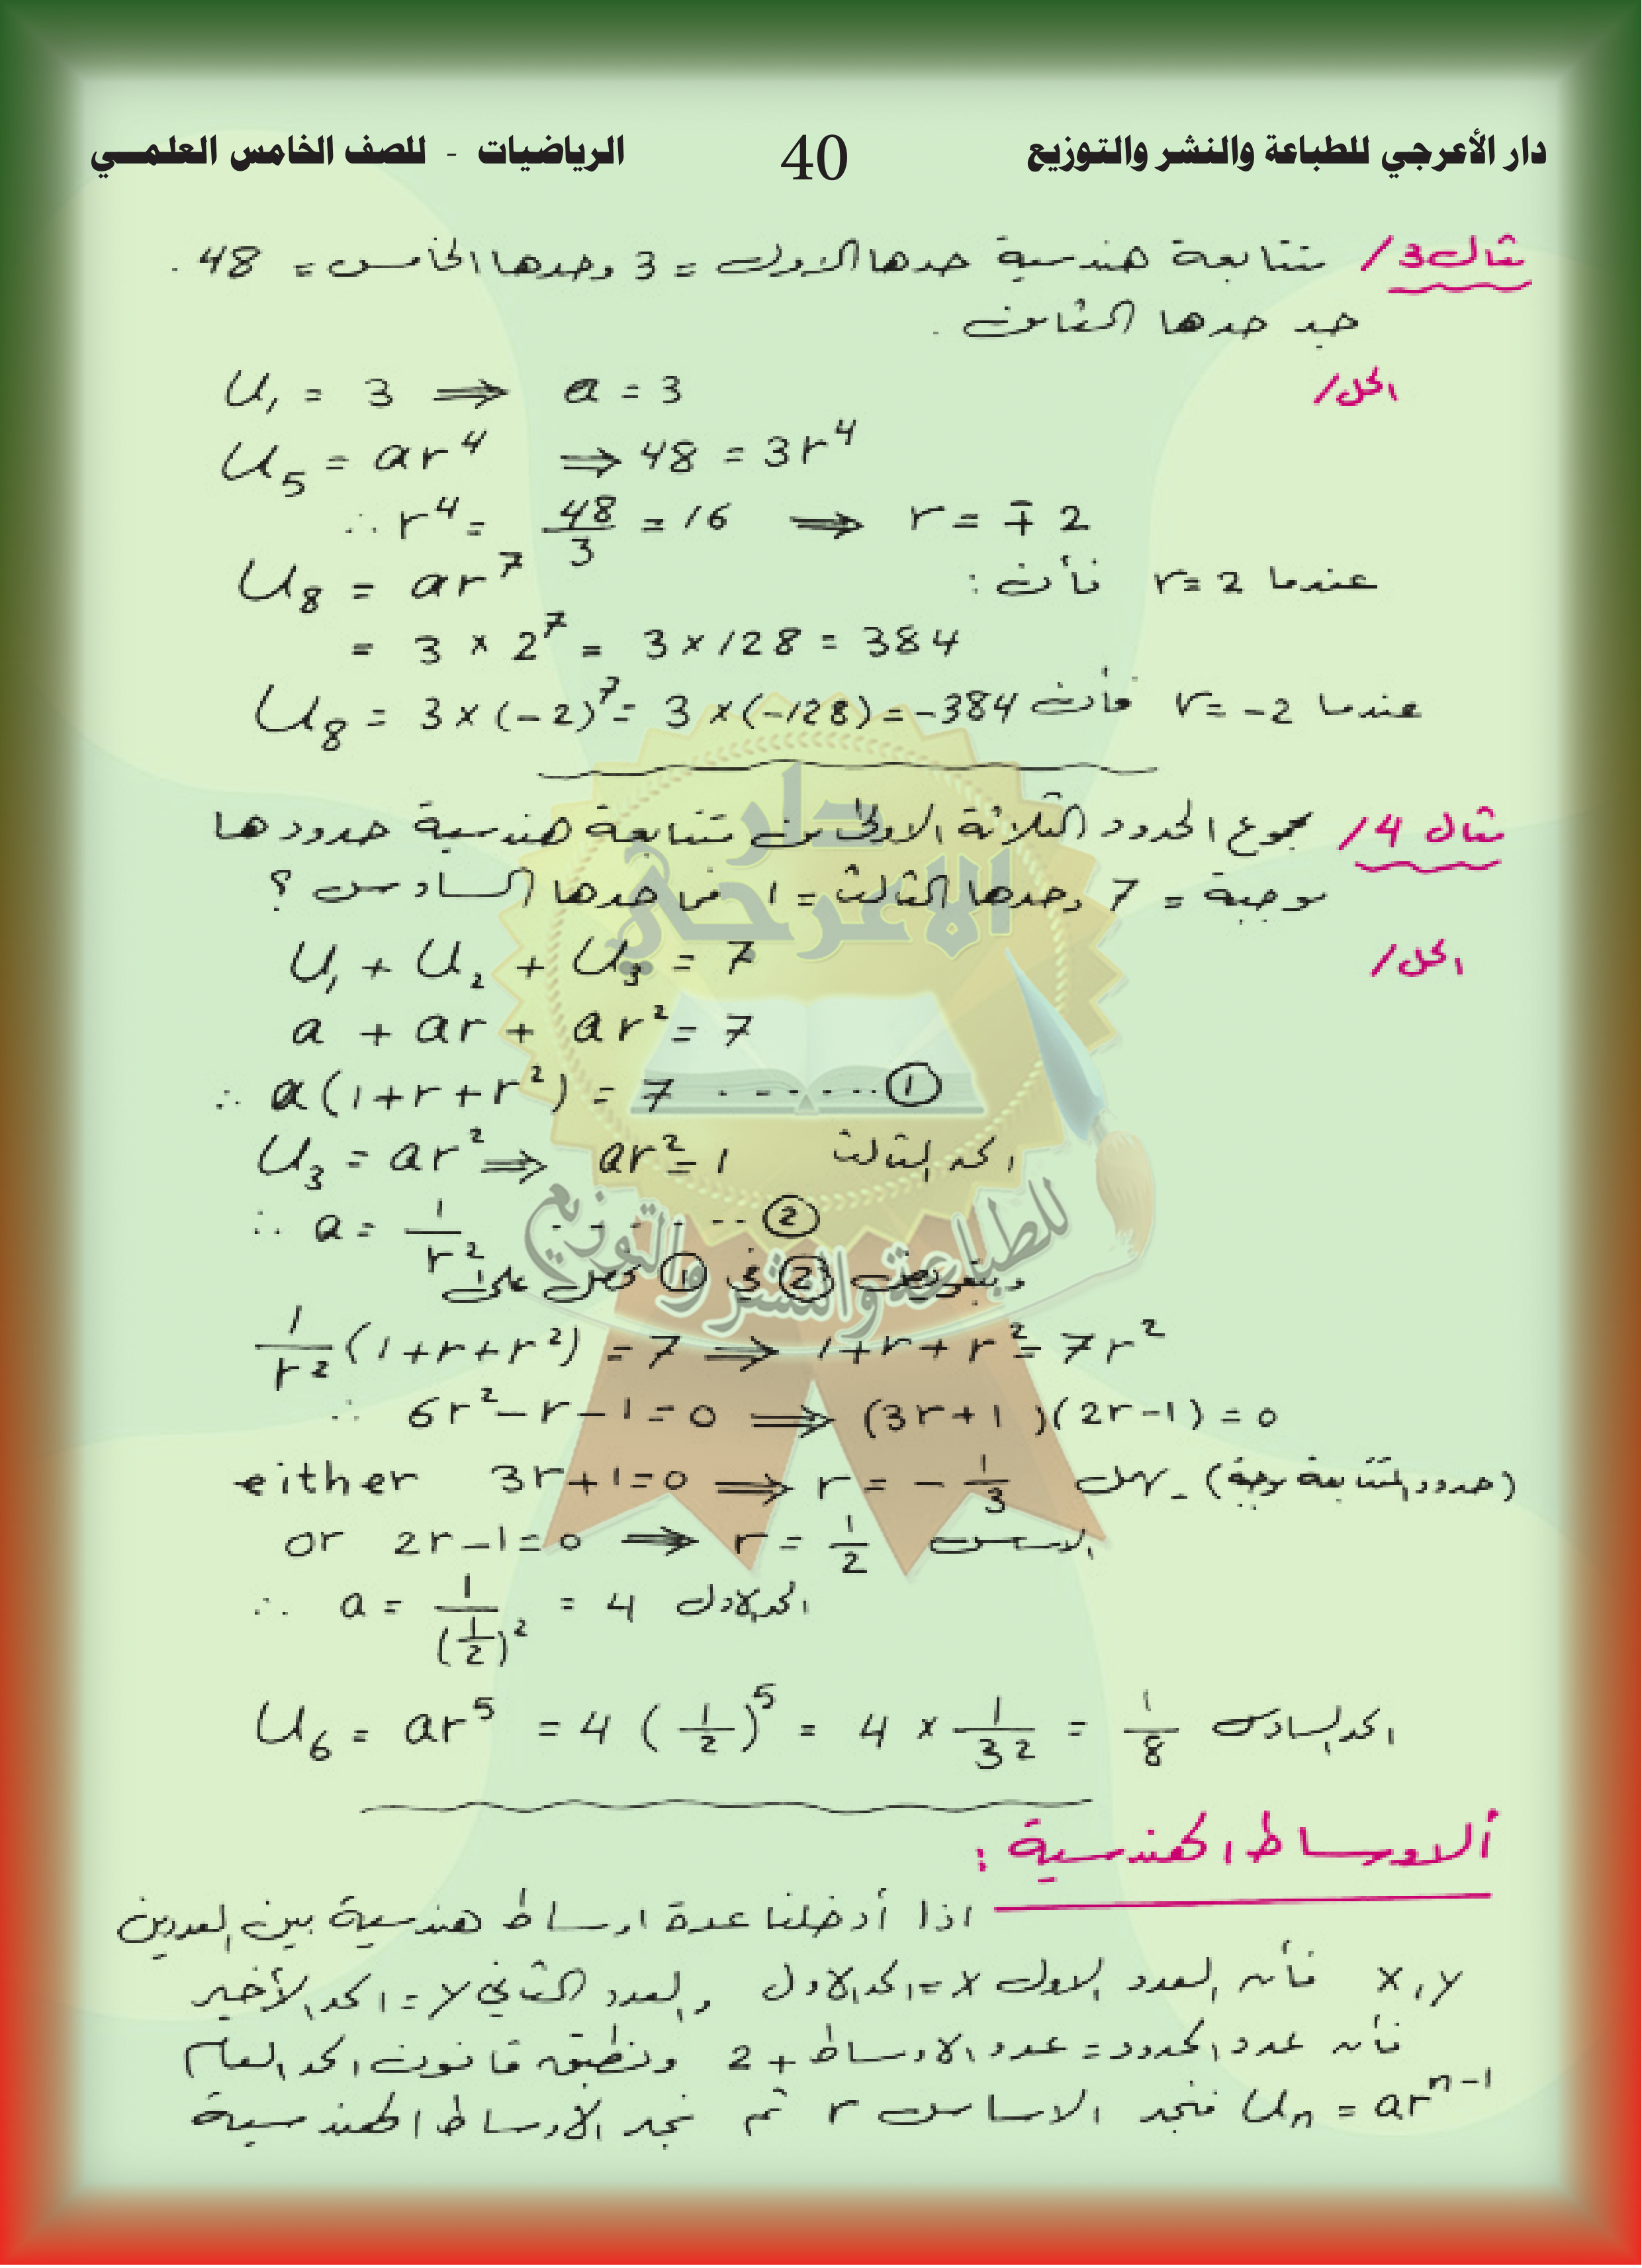 دار الأعرجي للطباعة والنشر والتوزيع 40 الرياضيات - للصف الخامس العلمـــي
مثال3/ متتابعة هندسية حدها الاول = 3 وحدها الخامس = 48 .
جد حدها الثامن .
الحل/
U₁ = 3 ⇒ a = 3
U₅ = ar⁴ ⇒ 48 = 3r⁴
∴ r⁴ = 48/3 = 16 ⇒ r = ∓ 2
عندما r = 2 فأن :
U₈ = ar⁷
= 3 × 2⁷ = 3 × 128 = 384
عندما r = -2 فأن U₈ = 3 × (-2)⁷ = 3 × (-128) = -384
مثال 4/ مجموع الحدود الثلاثة الاولى من متتابعة هندسية حدودها
موجبة = 7 وحدها الثالث = 1 فما حدها السادس ؟
الحل/
U₁ + U₂ + U₃ = 7
a + ar + ar² = 7
∴ a(1+r+r²) = 7 ........ ①
U₃ = ar² ⇒ ar² = 1 الحد الثالث
∴ a = 1/r² ....... ②
وبتعويض ② في ① نحصل على
1/r² (1+r+r²) = 7 ⇒ 1+r+r² = 7r²
∴ 6r² - r - 1 = 0 ⇒ (3r+1)(2r-1) = 0
either 3r+1=0 ⇒ r = -1/3 يهمل - (حدود المتتابعة موجبة)
or 2r-1=0 ⇒ r = 1/2 الاساس
∴ a = 1/(1/2)² = 4 الحد الاول
U₆ = ar⁵ = 4 (1/2)⁵ = 4 × 1/32 = 1/8 الحد السادس
ألاوساط الهندسية :
اذا أدخلنا عدة اوساط هندسية بين العددين
x , y فأن العدد الاول x = الحد الاول والعدد الثاني y = الحد الأخير
فأن عدد الحدود = عدد الاوساط + 2 ونطبق قانون الحد العام
Uₙ = arⁿ⁻¹ فنجد الاساس r ثم نجد الاوساط الهندسية
دار
الاعرجي
للطباعة والنشر والتوزيع